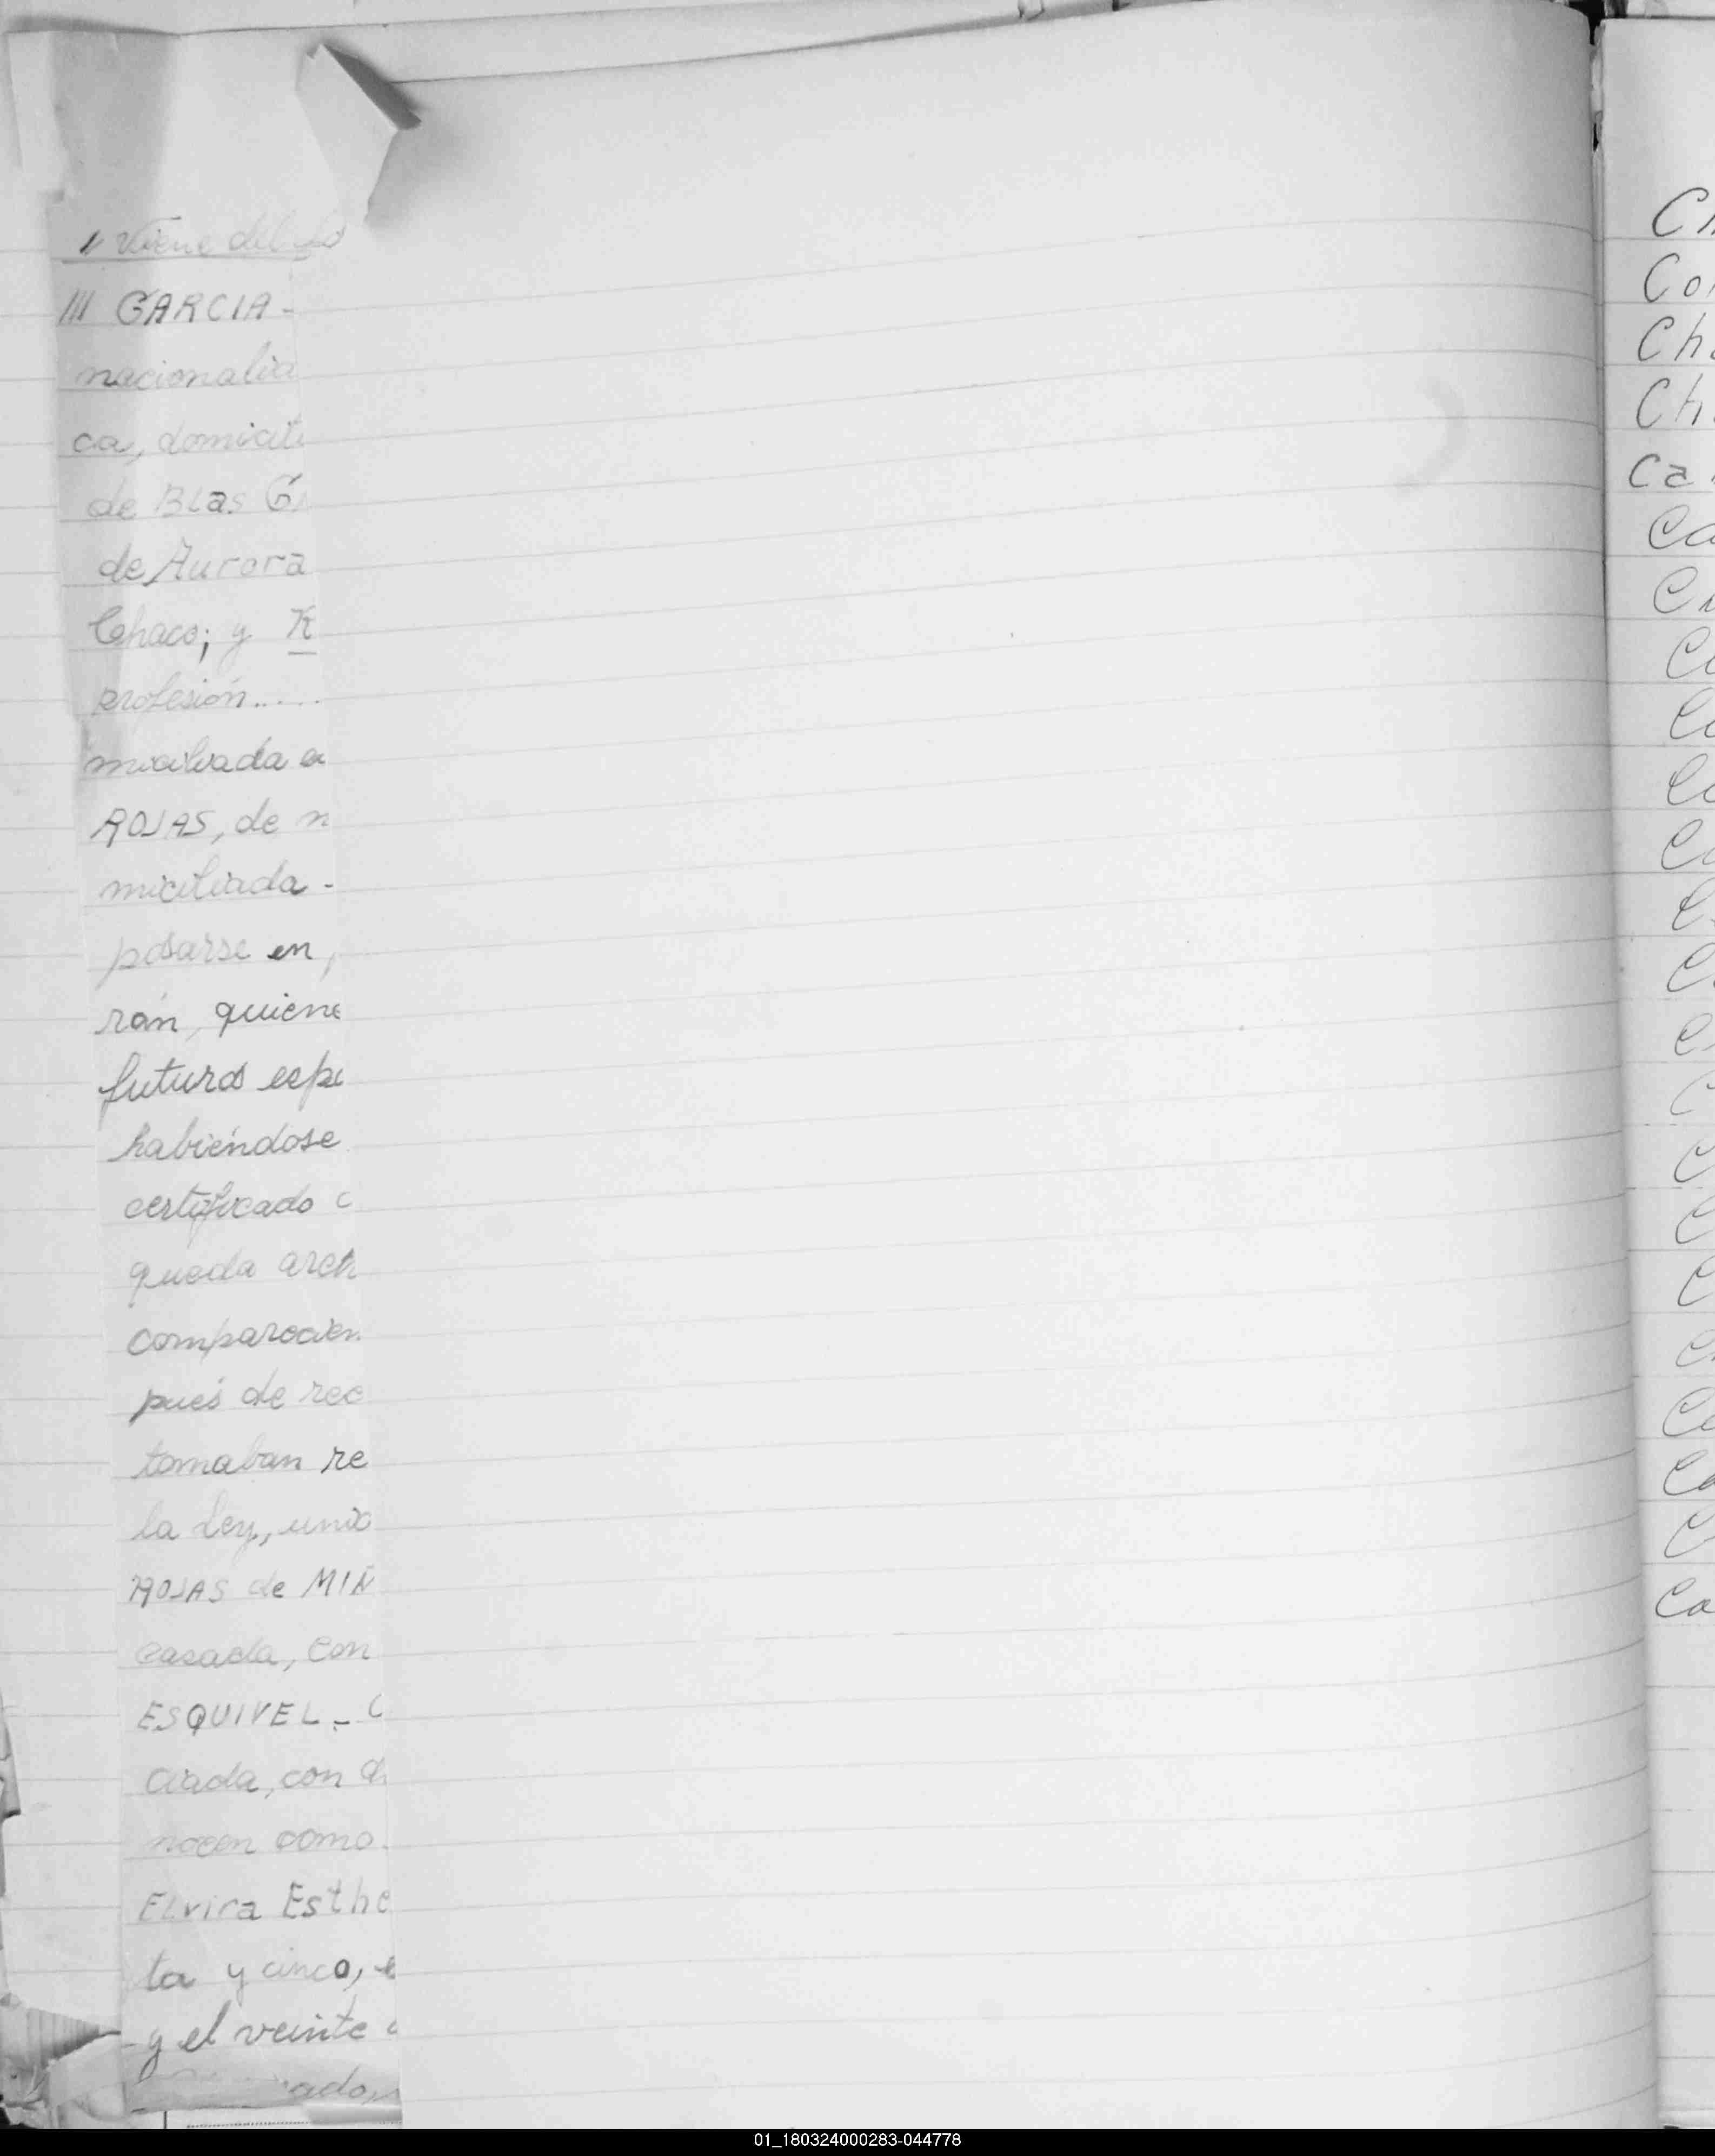 // Viene del
/// GARCIA -
nacionalid
ca, domicili
de BLas G
de Aurora
Chaco; y R
profesión.....
miciliada e
ROJAS, de n
miciliada -
posarse en
rán, quiene
futuros espo
habiéndose
certificado c
queda arch
comparecien
pués de rec
tomaban re
la Ley, unid
ROJAS de MIÑ
casada, con
ESQUIVEL - C
ciada, con d
nocen como
ELvira Esthe
ta y cinco, e
y el veinte
ado,
Ch
Con
Cha
Ch
Ca
Ca
C
C
C
C
C
C
C
C
C
C
C
C
C
Ce
Ca
C
Ca
01_180324000283-044778